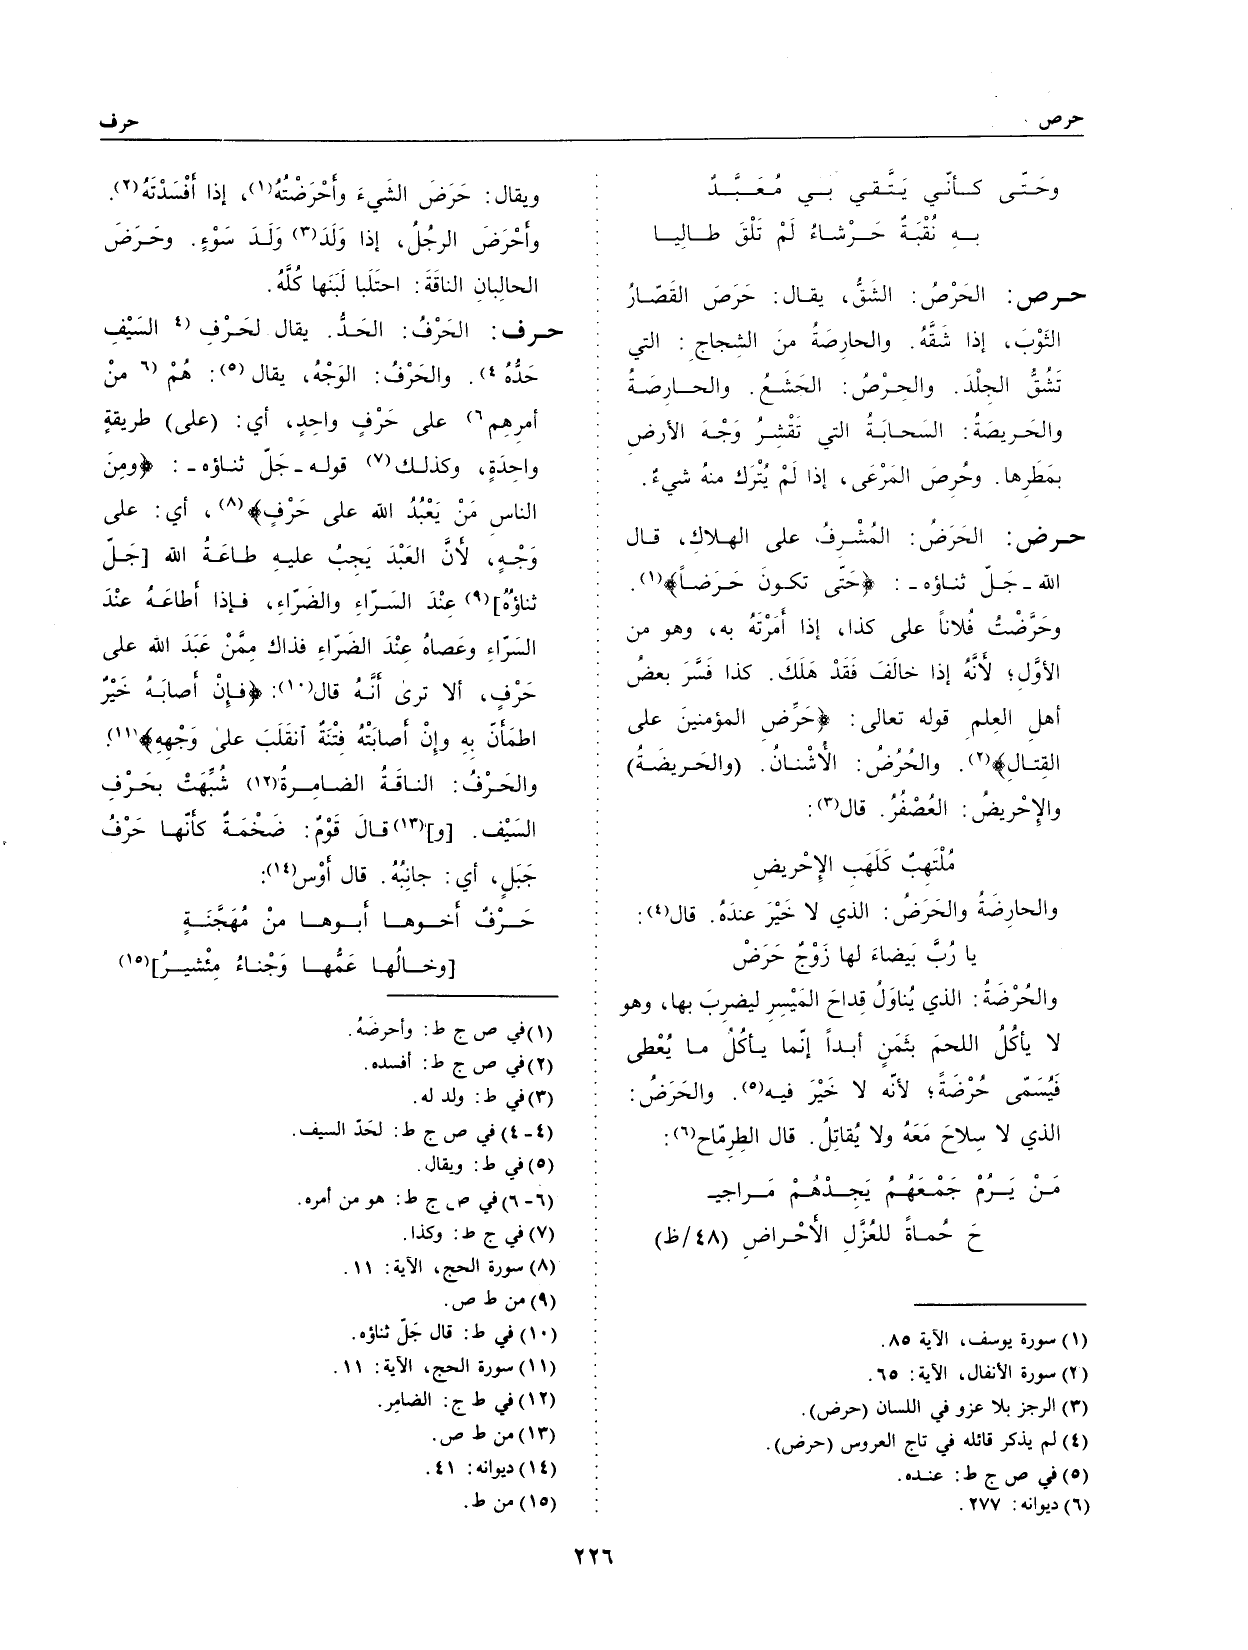 حرص
حرف
وحَتّى كـأنّي يَتَّـقي بـي مُـعَـبَّـدٌ
بـهِ نُقْبَـةٌ حَـرْشـاءُ لَمْ تَلْقَ طـاليـا
حـرص: الحَرْصُ: الشَقُّ، يقـال: حَرَصَ القَصّارُ
الثَوْبَ، إذا شَقَّهُ. والحارصَةُ منَ الشِجاجِ: التي
تَشُقُّ الجِلْدَ. والحِـرْصُ: الجَشَعُ. والحـارصَـةُ
والحَـريصَةُ: السَحابَةُ التي تَقْشِـرُ وَجْـهَ الأرضِ
بمَطَرِها. وحُرِصَ المَرْعَى، إذا لَمْ يُتْرَك منهُ شيءٌ.
حـرض: الحَرَضُ: المُشْـرِفُ على الهـلاكِ، قـال
الله ـ جَـلّ ثناؤه ـ : ﴿حَتّى تكـونَ حَـرَضـاً﴾(١).
وحَرَّضْتُ فُلاناً على كذا، إذا أمَرْتَهُ به، وهو من
الأوَّلِ؛ لأنَّهُ إذا خالَفَ فَقَدْ هَلَكَ. كذا فَسَّرَ بعضُ
أهلِ العِلمِ قوله تعالى: ﴿حَرِّضِ المؤمنينَ على
القتـالِ﴾(٢). والحُرُضُ: الأُشْنـانُ. (والحَـريضَـةُ)
والإحْريضُ: العُصْفُرُ. قال(٣):
مُلْتَهِبٌ كَلَهَبِ الإحْريضِ
والحارضَةُ والحَرَضُ: الذي لا خَيْرَ عندَهُ. قال(٤):
يا رُبَّ بَيضاءَ لها زَوْجٌ حَرَضْ
والحُرْضَةُ: الذي يُناوَلُ قِداحَ المَيْسِرِ ليضرِبَ بها، وهو
لا يأكُلُ اللحمَ بثَمَنٍ أبـداً إنّما يـأكُلُ مـا يُعْطى
فَيُسَمّى حُرْضَةً؛ لأنّه لا خَيْرَ فيـه(٥). والحَرَضُ:
الذي لا سِلاحَ مَعَهُ ولا يُقاتِلُ. قال الطِرمّاح(٦):
مَـنْ يَـرُمْ جَمْـعَهُـمْ يَجِـدْهُـمْ مَـراجيـ
حَ حُمـاةً للعُزَّلِ الأحْـراضِ (٤٨/ظ)
(١) سورة يوسف، الآية ٨٥.
(٢) سورة الأنفال، الآية: ٦٥.
(٣) الرجز بلا عزو في اللسان (حرض).
(٤) لم يذكر قائله في تاج العروس (حرض).
(٥) في ص ج ط: عنـده.
(٦) ديوانه: ٢٧٧.
ويقال: حَرَضَ الشَيءَ وأحْرَضْتُهُ(١)، إذا أفْسَدْتَهُ(٢).
وأحْرَضَ الرجُلُ، إذا وَلَدَ(٣) وَلَـدَ سَوْءٍ. وحَـرَضَ
الحالبانِ الناقَةَ: احتَلَبا لَبَنَها كُلَّهُ.
حـرف: الحَرْفُ: الحَـدُّ. يقال لحَـرْفِ (٤ السَيْفِ
حَدُّهُ ٤). والحَرْفُ: الوَجْهُ، يقال (٥): هُمْ (٦ منْ
أمرِهم ٦) على حَرْفٍ واحِدٍ، أي: (على) طريقةٍ
واحِدَةٍ، وكذلـك(٧) قولـه ـ جَـلّ ثنـاؤه ـ : ﴿ومِنَ
الناسِ مَنْ يَعْبُدُ الله على حَرْفٍ﴾(٨)، أي: على
وَجْـهٍ، لأنَّ العَبْدَ يَجِبُ عليـهِ طـاعَـةُ الله [جَـلّ
ثناؤهُ](٩) عِنْدَ السَـرّاءِ والضَرّاءِ، فـإذا أطاعَـهُ عنْدَ
السَرّاءِ وعَصاهُ عِنْدَ الضَرّاءِ فذاك مِمَّنْ عَبَدَ الله على
حَرْفٍ، ألا ترى أنَّـهُ قال(١٠): ﴿فـإنْ أصابَـهُ خَيْرٌ
اطمَأنّ بهِ وإنْ أصابَتْهُ فِتْنَةٌ ٱنقَلَبَ على وَجْههِ﴾(١١).
والحَـرْفُ: الناقَـةُ الضـامِـرةُ(١٢) شُبِّهَتْ بحَـرْفِ
السَيْفِ. [و](١٣)قـالَ قَوْمٌ: ضَخْمَـةٌ كأنّهـا حَرْفُ
جَبَلٍ، أي: جانِبُهُ. قال أوْس(١٤):
حَـرْفٌ أخـوهـا أبـوهـا منْ مُهَجَّنَـةٍ
[وخـالُهـا عَمُّهـا وَجْنـاءُ مِئْشيـرُ](١٥)
(١) في ص ج ط: وأحرضَهُ.
(٢) في ص ج ط: أفسده.
(٣) في ط: ولد له.
(٤-٤) في ص ج ط: لحَدّ السيف.
(٥) في ط: ويقال.
(٦-٦) في ص ج ط: هو من أمره.
(٧) في ج ط: وكذا.
(٨) سورة الحج، الآية: ١١.
(٩) من ط ص.
(١٠) في ط: قال جَلّ ثناؤه.
(١١) سورة الحج، الآية: ١١.
(١٢) في ط ج: الضامِر.
(١٣) من ط ص.
(١٤) ديوانه: ٤١.
(١٥) من ط.
٢٢٦